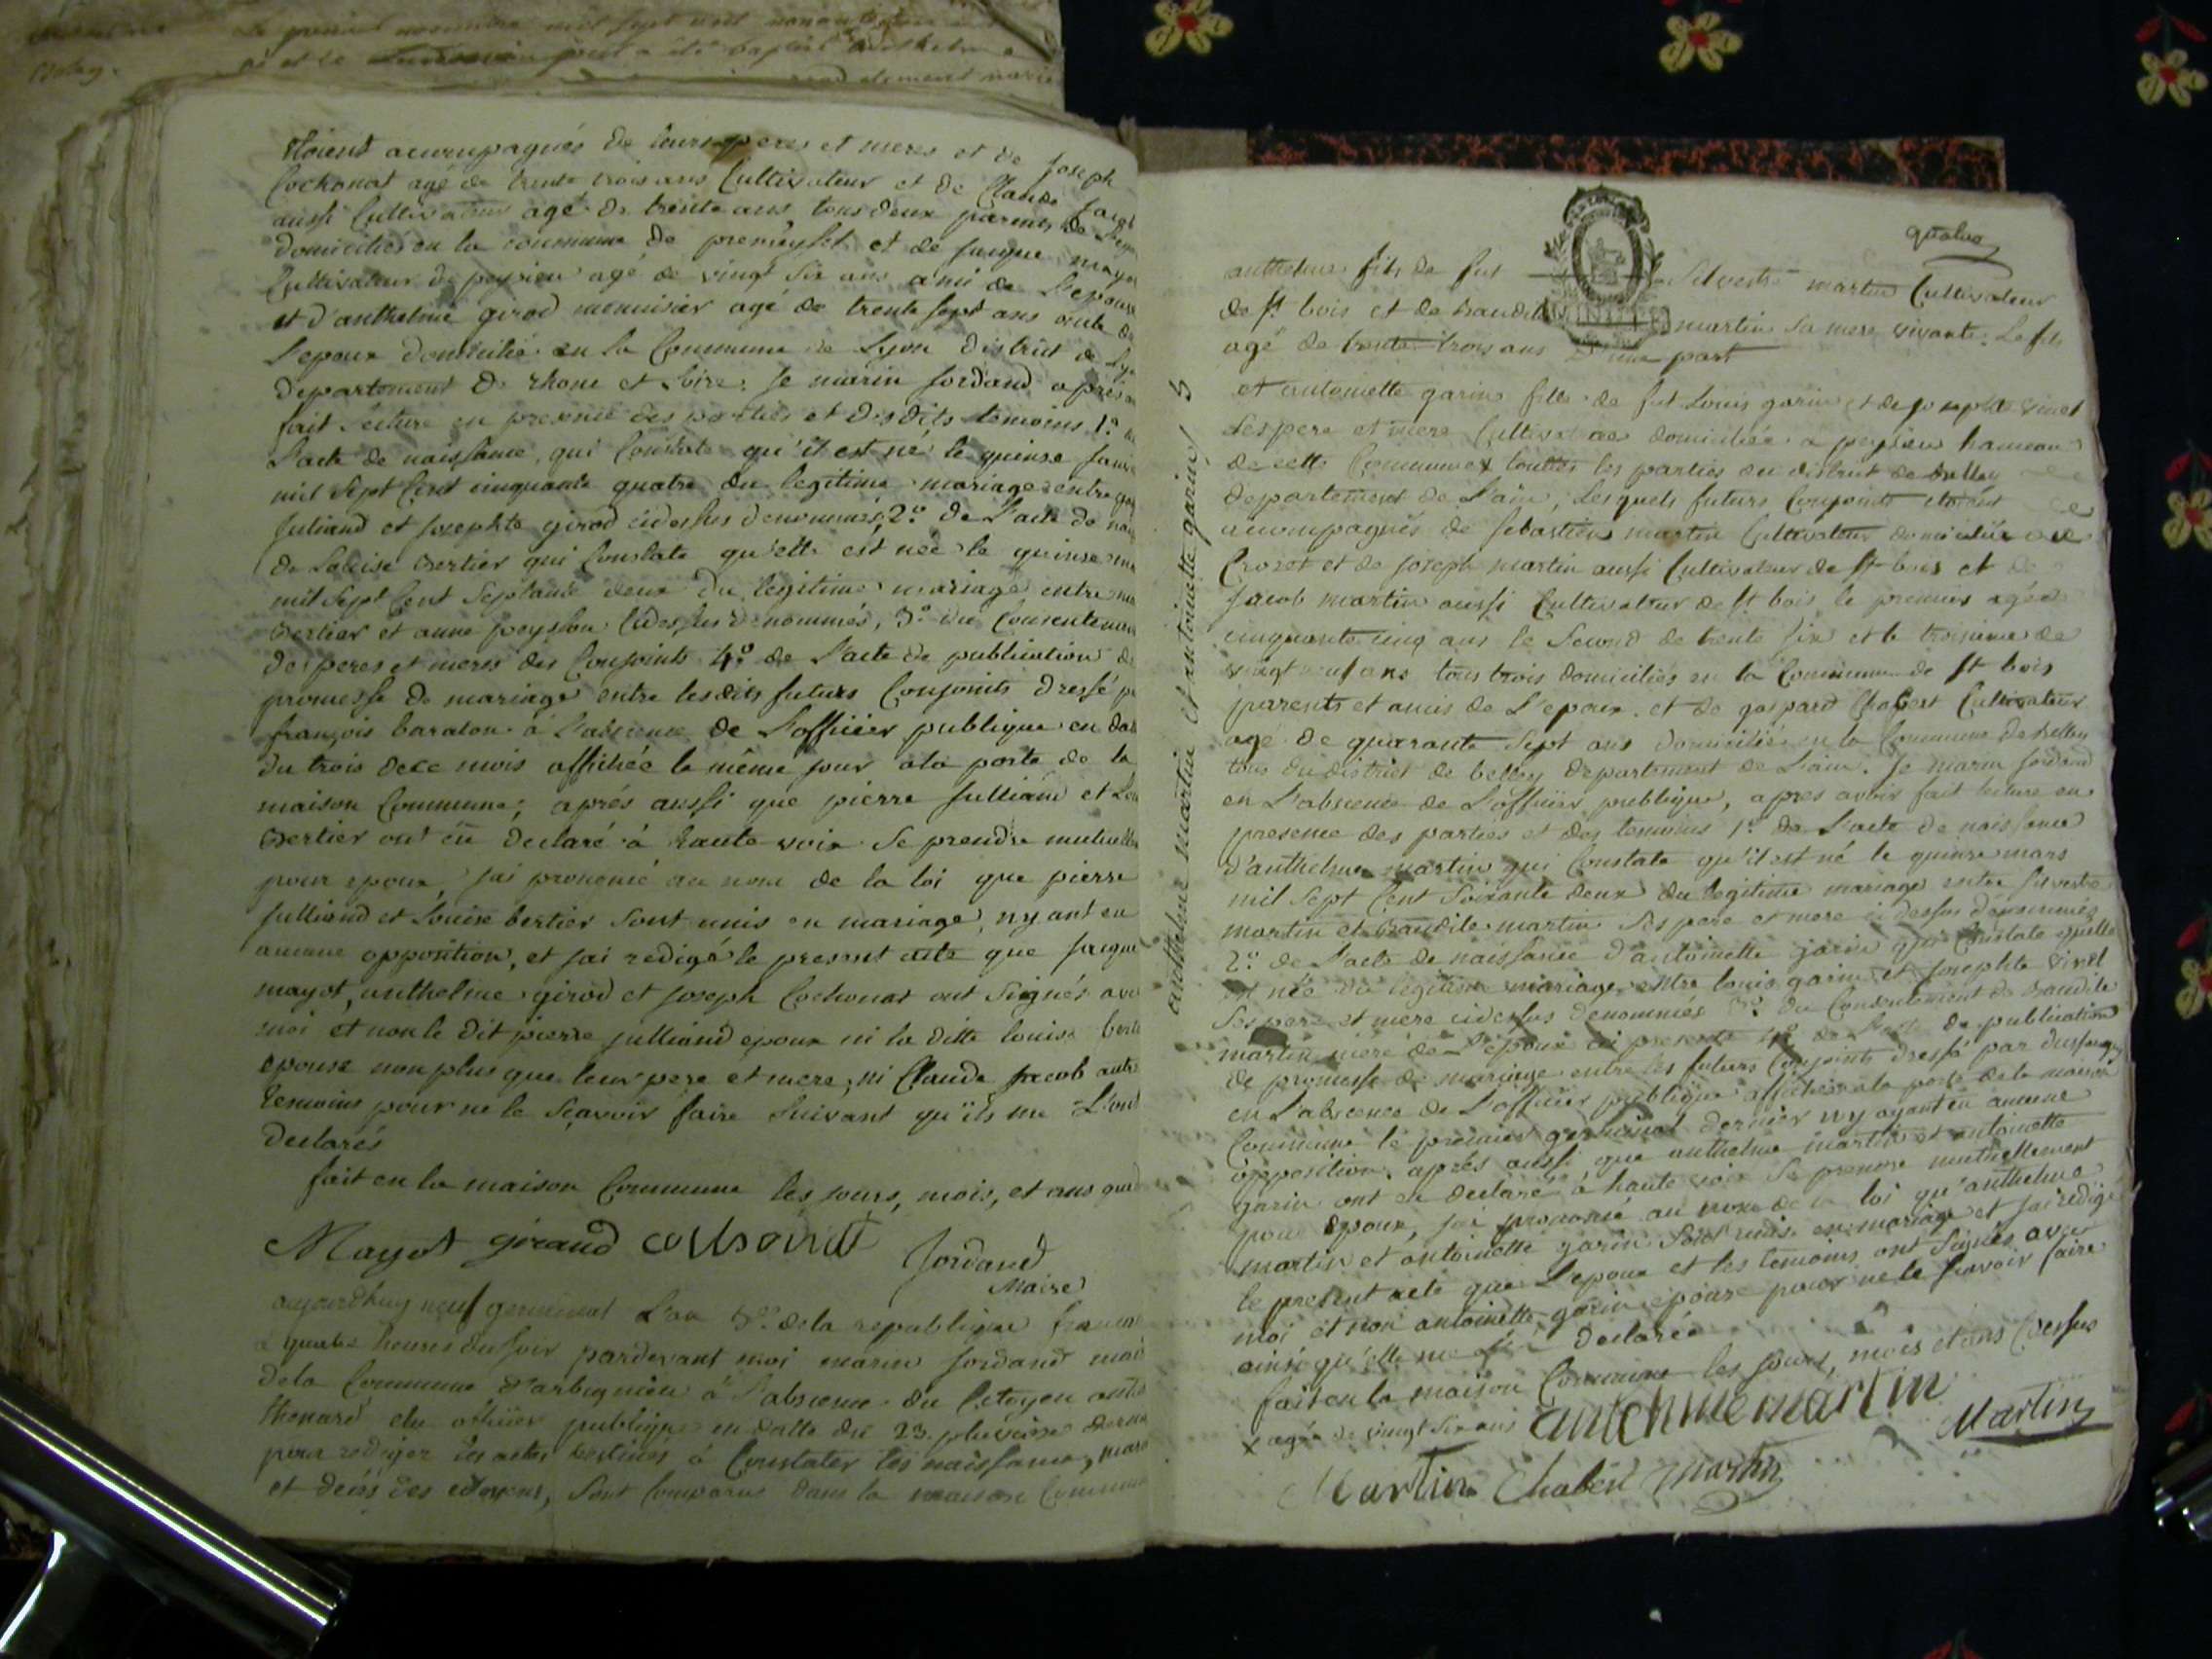 etoient accompagnés de leurs peres et meres et de Joseph
Cochonat agé de trente trois ans Cultivateur et de Claude Jacob
aussi Cultivateur agé de trente ans tous deux parents de
domiciliés en la commune de premeyssel et de Jacque mayot
Cultivateur de peysieu agé de vingt six ans ami de L'epouse
et d'anthelme girod menuisier agé de trente sept ans oncle de
L'epoux domicilié en la Commune de Lyon district de
departement de rhone et Loire. Je marin Jordand après
fait lecture en presence des parties et desdits temoins 1.º
L'acte de naissance, qui Constate qu'il est né le quinse
mil Sept Cent cinquante quatre du legitime mariage entre
Julliand et Josephte girod cidessus denommés; 2.º de L'acte de
de Louise Bertier qui Constate qu'elle est née le quinse
mil Sept Cent Septante deux du legitime mariage entre
Bertier et anne peysson cidessus denommés, 3.º du Consentement
des peres et meres des Conjoints 4.º de L'acte de publication de
promesse de mariage entre lesdits futurs Conjoints dressé
françois baraton à L'abscence de L'officier publique en
du trois dece mois affichée le même jour ala porte de la
maison Commune; aprés aussi que pierre Julliand et
Bertier ont eû declaré à haute voix Se prendre
pour epoux, jai prononcé au nom de la loi que pierre
Julliand et Louise bertier Sont unis en mariage, ny ant eu
aucune opposition, et jai redigé le present acte que Jacque
mayot, anthelme girod et Joseph Cochonat ont Signés
moi et non le dit pierre julliand epoux ni la ditte louise
epouse non plus que leur pere et mere, ni Claude Jacob
temoins pour ne le Sçavoir faire Suivant qu'ils me L'ont
declarés
fait en la maison Commune les jours, mois, et ans que
Mayot giraud cochonat Jordand
Maire
aujourdhuy neuf germinal L'an 3.e dela republique
a quatre heures du soir pardevant moi marin Jordand
dela Commune d'arbignieu à L'abscence du Citoyen
thenard elu officier publique en datte du 23 pluviose
pour rediger les actes destinés à Constater les naissance,
et decés des citoyens, Sont Comparus dans la maison Commune
quatre
anthelme martin et antoinette garin 5
anthelme fils de fut Silvestre martin Cultivateur
de St bois et de Baudile martin Sa mere vivante. Le fils
agé de trente trois ans d'une part
et antoinette garin fille de fut Louis garin et de josephte vinet
Ses pere et mere Cultivatrice domiciliée a peysieu hameau
de cette Commune x touttes les parties du district de Belley
departement de L'ain, Lesquels futurs Conjoints etoient
accompagnés de Sebastien martin Cultivateur domicilié au
Crozet et de joseph martin aussi Cultivateur de St bois et de
Jacob martin aussi Cultivateur de St bois le premier agé de
cinquante cinq ans le Second de trente six et le troisieme de
vingt neuf ans tous trois domiciliés en la Commune de St bois
parents et amis de L'epoux. et de gaspard Chabert Cultivateur
agé de quarante Sept ans domicilié en la Commune de Belley
tous du district de belley departement de L'ain. Je marin Jordand
en L'abscence de L'officier publique, apres avoir fait lecture en
presence des parties et des temoins 1.º de L'acte de naissance
d'anthelme martin qui Constate qu'il est né le quinse mars
mil Sept Cent Soixante deux du legitime mariage entre Silvestre
martin et Baudile martin Ses pere et mere ci dessus denommés
2.º de L'acte de naissance d'antoinette garin qui Constate quelle
est née du legitime mariage entre louis garin et Josephte vinet
Ses pere et mere cidessus denommés 3.º du Consentement de Baudile
martin mere de L'epoux ici presente 4.º de L'acte de publication
de promesse de mariage entre les futurs Conjoints dressé par
en L'abscence de L'officier publique affichée ala porte dela maison
Commune le premier germinal dernier ny ayant eû aucune
opposition. aprés aussi que anthelme martin et antoinette
garin ont eu declaré à haute voix Se prendre mutuellement
pour epoux, jai prononcé au nom de la loi qu'anthelme
martin et antoinette garin Sont unis en mariage et jai redigé
le present acte que L'epoux et les temoins ont Signés avec
moi et non antoinette garin epouse pour ne le Sçavoir faire
ainsi qu'elle me declarée
fait en la maison Commune les jours, mois et ans Cidessus
x agée de vingt six ans antehmemartin Martin
Martin Chabert martin